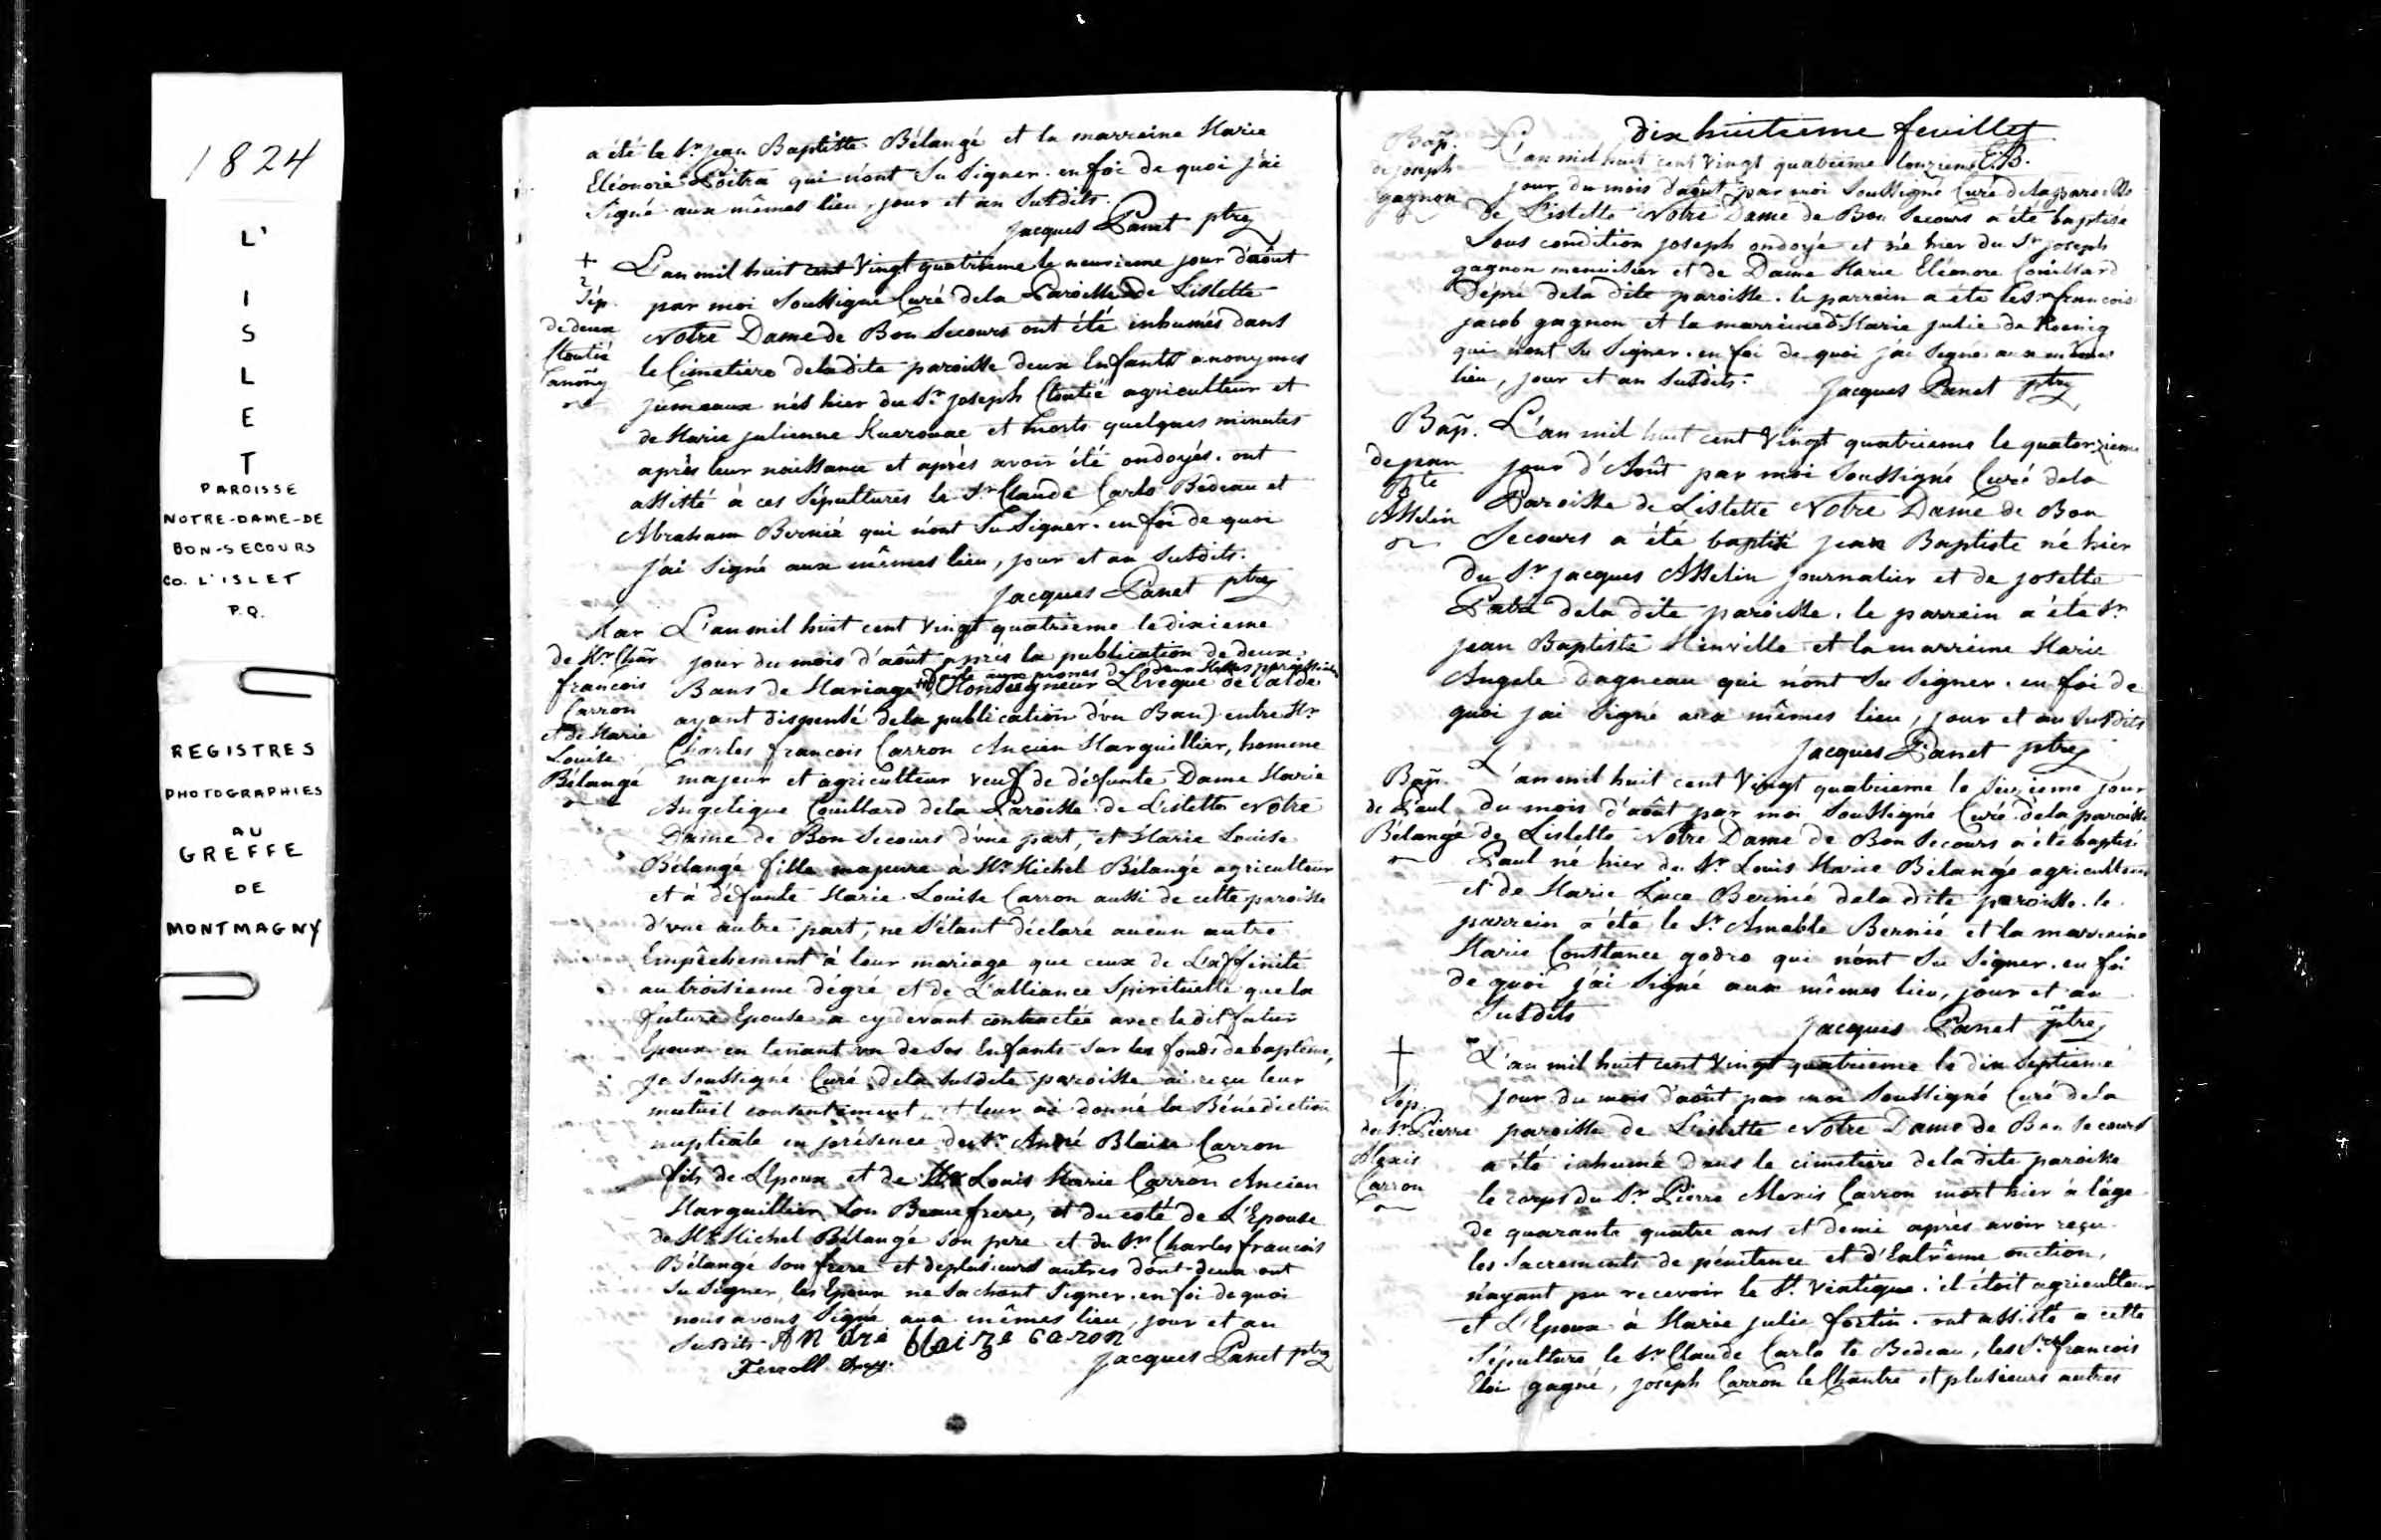 1824
L'
I
S
L
E
T
PAROISSE
NOTRE-DAME-DE
BON-SECOURS
CO. L'ISLET
P.Q.
REGISTRES
PHOTOGRAPHIES
AU
GREFFE
DE
MONTMAGNY
a été le Sr. jean Baptiste Bélangé et la marreine Marie
Eléonore Poitra qui n'ont Su Signer. en foi de quoi j'ai
Signé aux mêmes lieu, jour et an Susdits.
jacques Panet ptre
+
Sép.
de deux
Cloutié
anony
L'an mil huit cent Vingt quatrieme le neuvieme jour d'août
par moi Soussigné Curé dela Paroisse de Lislette
Notre Dame de Bon Secours ont été inhumés dans
le Cimetiere deladite paroisse deux Enfants anonymes
jumeaux nés hier du Sr. joseph Cloutié agriculteur et
de Marie julienne Kuerouac et morts quelques minutes
après leur naissance et après avoir été ondoyés. ont
assisté à ces Sépultures le Sr. Claude Carlo Bedeau et
Abraham Bernié qui n'ont Su Signer. en foi de quoi
j'ai Signé aux mêmes lieu, jour et an Susdits.
jacques Panet ptre
Mar
de Mr. Char
francois
Carron
et de Marie
Louise
Bélangé
L'an mil huit cent Vingt quatrieme le dixieme
jour du mois d'août après la publication de deux
faite aux prones de deux Messes paroissiales
Bans de Mariage Monseigneur L'Eveque de Saldes
ayant dispensé dela publication d'un Ban) entre Mr.
Charles francois Carron Ancien Marguillier, homme
majeur et agriculteur veuf de défunte Dame Marie
Angelique Couillard dela Paroisse de L'islette Notre
Dame de Bon Secours d'une part, et Marie Louise
Bélangé fille majeure à Mr. Michel Bélangé agriculteur
et à défunte Marie Louise Carron aussi de cette paroisse
d'une autre part, ne S'étant déclaré aucun autre
Empêchement à leur mariage que ceux de L'affinité
au troisieme dégré et de L'alliance Spirituelle que la
future Epouse a cy devant contractée avec le dit futur
Epoux en tenant un de Ses Enfants Sur les fonds de baptême,
je Soussigné Curé dela Susdite paroisse ai reçu leur
mutuel consentement et leur ai donné la Bénédiction
nuptiale en présence du Sr. André Blaise Carron
fils de L'Epoux et de Mr Louis Marie Carron Ancien
Marguillier Son Beaufrere, et du coté de L'Epouse
de Mr. Michel Bélangé Son pere et du Sr. Charles francois
Bélangé Son frere et deplusieurs autres dont deux ont
Su Signer, les Epoux ne Sachant Signer. en foi de quoi
nous avons Signé aux mêmes lieu, jour et an
Susdits. AN dré blaize caron
jacques Panet ptre
dix huitieme feuillet
Bap.
de joseph
gagnon
L'an mil huit cent Vingt quatrieme
jour du mois d'août par moi Soussigné Curé dela paroisse
de L'islette Notre Dame de Bon Secours a été baptisé
Sous condition joseph ondoyé et né hier du Sr. joseph
gagnon menuisier et de Dame Marie Eléonore Couillard
Dépré dela dite paroisse. le parrein a été le Sr francois
jacob gagnon et la marreine Marie julie de Koenig
qui n'ont Su Signer. en foi de quoi j'ai Signé aux mêmes
lieu, jour et an Susdits.
jacques Panet ptre
Bap.
de jean
Bte
Asselin
L'an mil huit cent Vingt quatrieme le quatorzieme
jour d'Août par moi Soussigné Curé dela
Paroisse de Lislette Notre Dame de Bon
Secours a été baptisé jean Baptiste né hier
du Sr. jacques Asselin journalier et de josette
dela dite paroisse. le parrein a été Sr.
jean Baptiste Minville et la marreine Marie
Angele Dagneau qui n'ont Su Signer. en foi de
quoi j'ai Signé aux mêmes lieu, jour et an Susdits
jacques Panet ptre
Bap.
de Paul
Bélangé
L'an mil huit cent Vingt quatrieme le Seizieme jour
du mois d'août par moi Soussigné Curé dela paroisse
de Lislette Notre Dame de Bon Secours a été baptisé
Paul né hier du Sr. Louis Marie Bélangé agriculteur
et de Marie Luce Bernié dela dite paroisse. le
parrein a été le Sr. Amable Bernié et la marreine
Marie Constance godro qui n'ont Su Signer. en foi
de quoi j'ai Signé aux mêmes lieu, jour et an
Susdits
jacques Panet ptre
+
Sép.
du Sr. Pierre
Alexis
Carron
L'an mil huit cent Vingt quatrieme le dix Septieme
jour du mois d'août par moi Soussigné Curé dela
paroisse de L'islette Notre Dame de Bon Secours
a été inhumé dans le cimetiere dela dite paroisse
le corps du Sr. Pierre Alexis Carron mort hier à l'âge
de quarante quatre ans et demi après avoir reçu
les Sacrements de pénitence et d'Extrême onction,
n'ayant pu recevoir le St. Viatique. il étoit agriculteur
et L'Epoux à Marie julie fortin. ont assisté a cette
Sépulture le Sr. Claude Carlo le Bedeau, les Srs francois
Eloi gagné, joseph Carron le Chantre et plusieurs autres